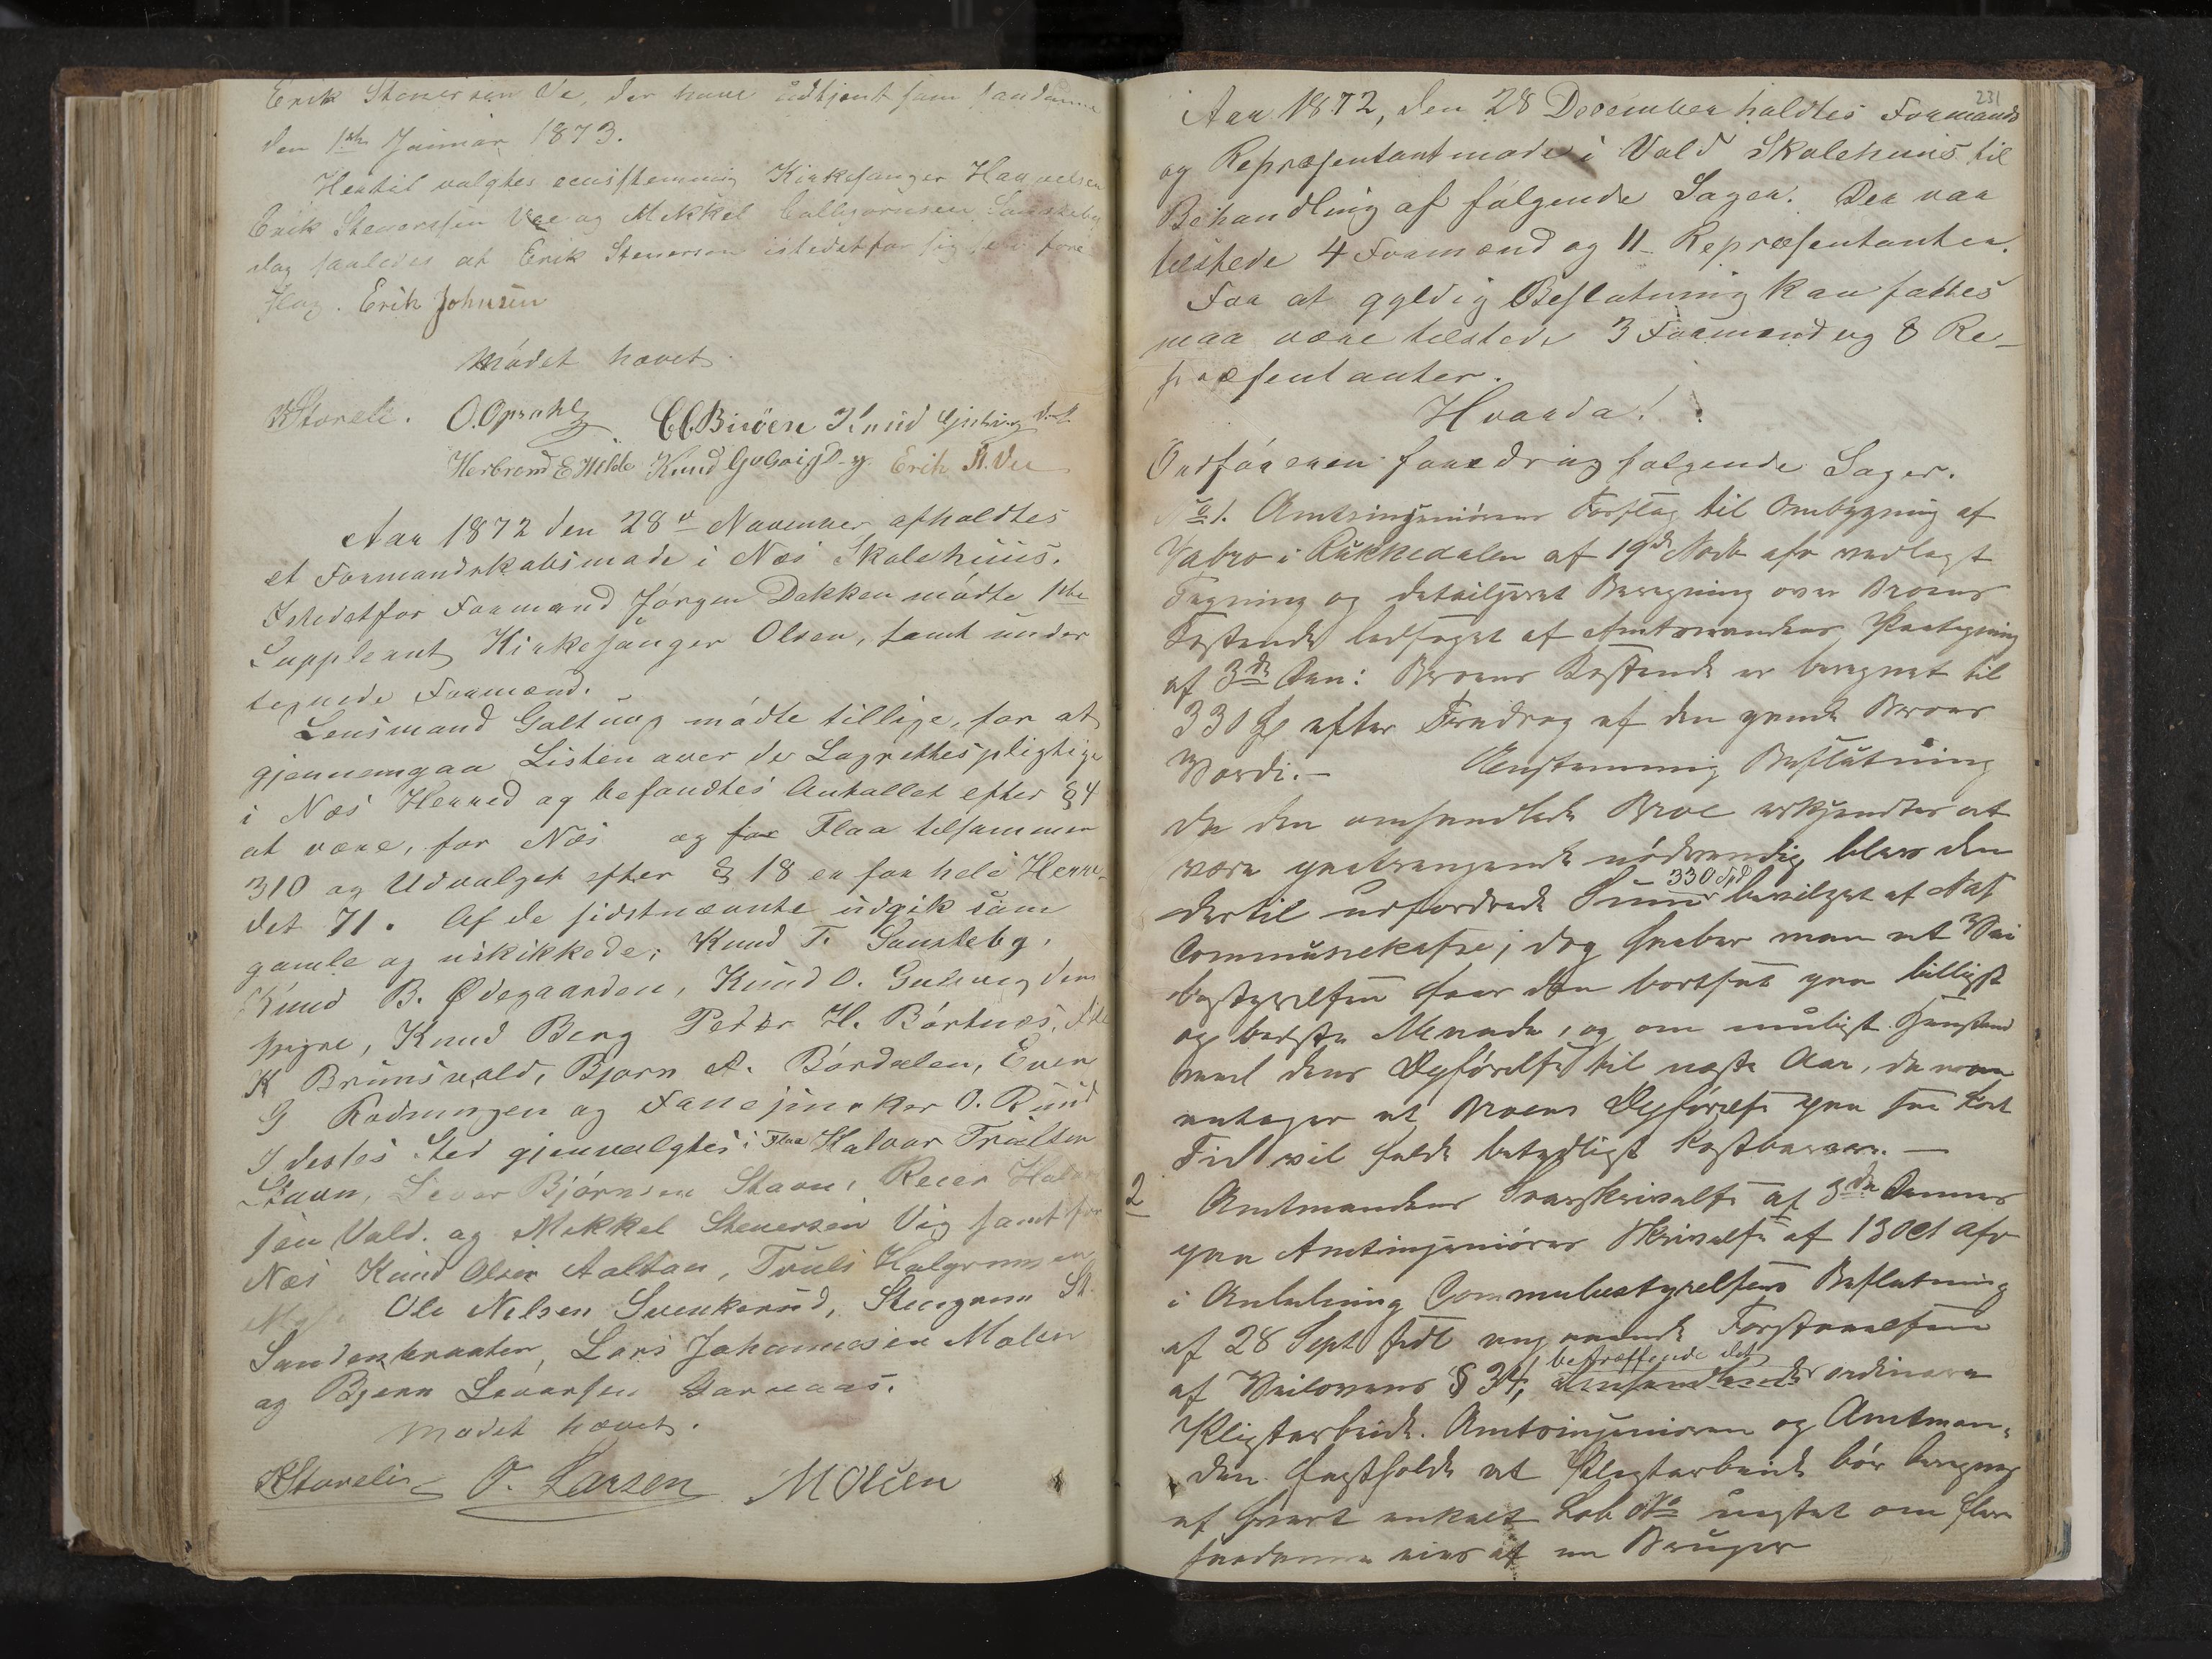 Erik Stenersen Ve, der have udtjent som saadanne
den 1ste Januar 1873.
Hertil valgtes eenstemmig Kirkesanger Halvorsen
Erik Stenerssen Vee og Mikkel
dog saaledes at Erik Stenersen istedetfor sig selv fore
slog. Erik Johnsen
Mødet hævet.
KStoreli. O. Opsahl C.C. Biröen Knud
Herbrand E Hilde Knud Erik S. Vee
Aar 1872 den 28de November afholdtes
et Formandskabsmøde i Næs Skolehuus.
Istedetfor Formand Jørgen Dokken mødte 1ste
Suppleant Kirkesanger Olsen, samt under
tegnede Formænd.
Lensmand Galtung mødte tillige, for at
gjennemgaa Listen over de Lagrettespligtige
i Næs Herred og befandtes Antallet efter § 4
at være, for Næs og for Flaa tilsammen
310 og Udvalget efter § 18 er for hele Herre-
det 71. Af de sidstnævnte udgik som
gamle og uskikkede; Knud T. Sausteby,
Knud B. Ødegaarden, Knud O. Gulsvig dem
yngre, Knud Berg Peder H. Børtnæs,
K Brunsvold, Bjørn A. Børdalen, Even
G Rodningen og Fanejunker O. Ruud
I desses Sted gjenvalgtes i Flaa Halvor Trulsen
Stavn, Sevar Bjørnsen Stavn, Reier Halvor
sen Vold. og Mikkel Stenersen Vig samt for
Næs Knud Olsen Aaltan, Truls Halgrimsen
Ole Nilsen Svenkerud, Stengrim St.
Sandenbraaten, Lars Johannesen Molen
og Bjørn Sevarsen Garnaas.
Mødet hævet.
KStoreli O. Larsen MOlsen
231
Aar 1872, den 28 December holdtes Formands
og Repræsentantmøde i Vold Skolehuus til
Behandling af følgende Sager. Der var
tilstede 4 Formænd og 11 Repræsentanter.
For at gyldig Beslutning kan fattes
maa være tilstede 3 Formænd og 8 Re-
præsentanter.
Hvorda!
Ordføreren foredrag følgende Sager.
No 1. Amtsingeniørens Forslag til Ombygning af
Vabro i Rukkedalen af 19de Novb afv vedlagt
Tegning og detailjeret Beregning over Broens
Kostende ledsaget af Amtmandens Paategning
af 3de Den: Broens Kostende er beregnet til
330 Spd efter Fradrag af den gamle Broes
Værdi.— Eenstemmig Beslutning
Da den omhandlede Broe erkjendtes at
være paatrængende nødvendig blev den
330 Spd
dertil udfordrede Sum bevilget af Næs
Communekasse; dog haaber man at Vei
bestyrelsen faar den bortsat paa billigst
og bedste Maade, og om muligt Henstand
med dens Opførelse til næste Aar, da man
antager at Broens Opførelse paa saa kort
Tid vil falde betydligt kostbarere.—
2 Amtmandens Svarskrivelse af 3de Dennes
paa Amtsingeniørens Skrivelse af 13 Oct afv
i Anledning Communebestyrelsens Beslutning
af 28 Sept sidl angaaende Forstaaelsen
betræffende det
af Veilovens § 34, omhandlende ordinære
Pligtarbeide. Amtsingeniøren og Amtman-
den fastholde at Pligtarbeide bør beregnes
af hvert enkelt Løb No uagtet om flere
saadanne eies af en Bruger